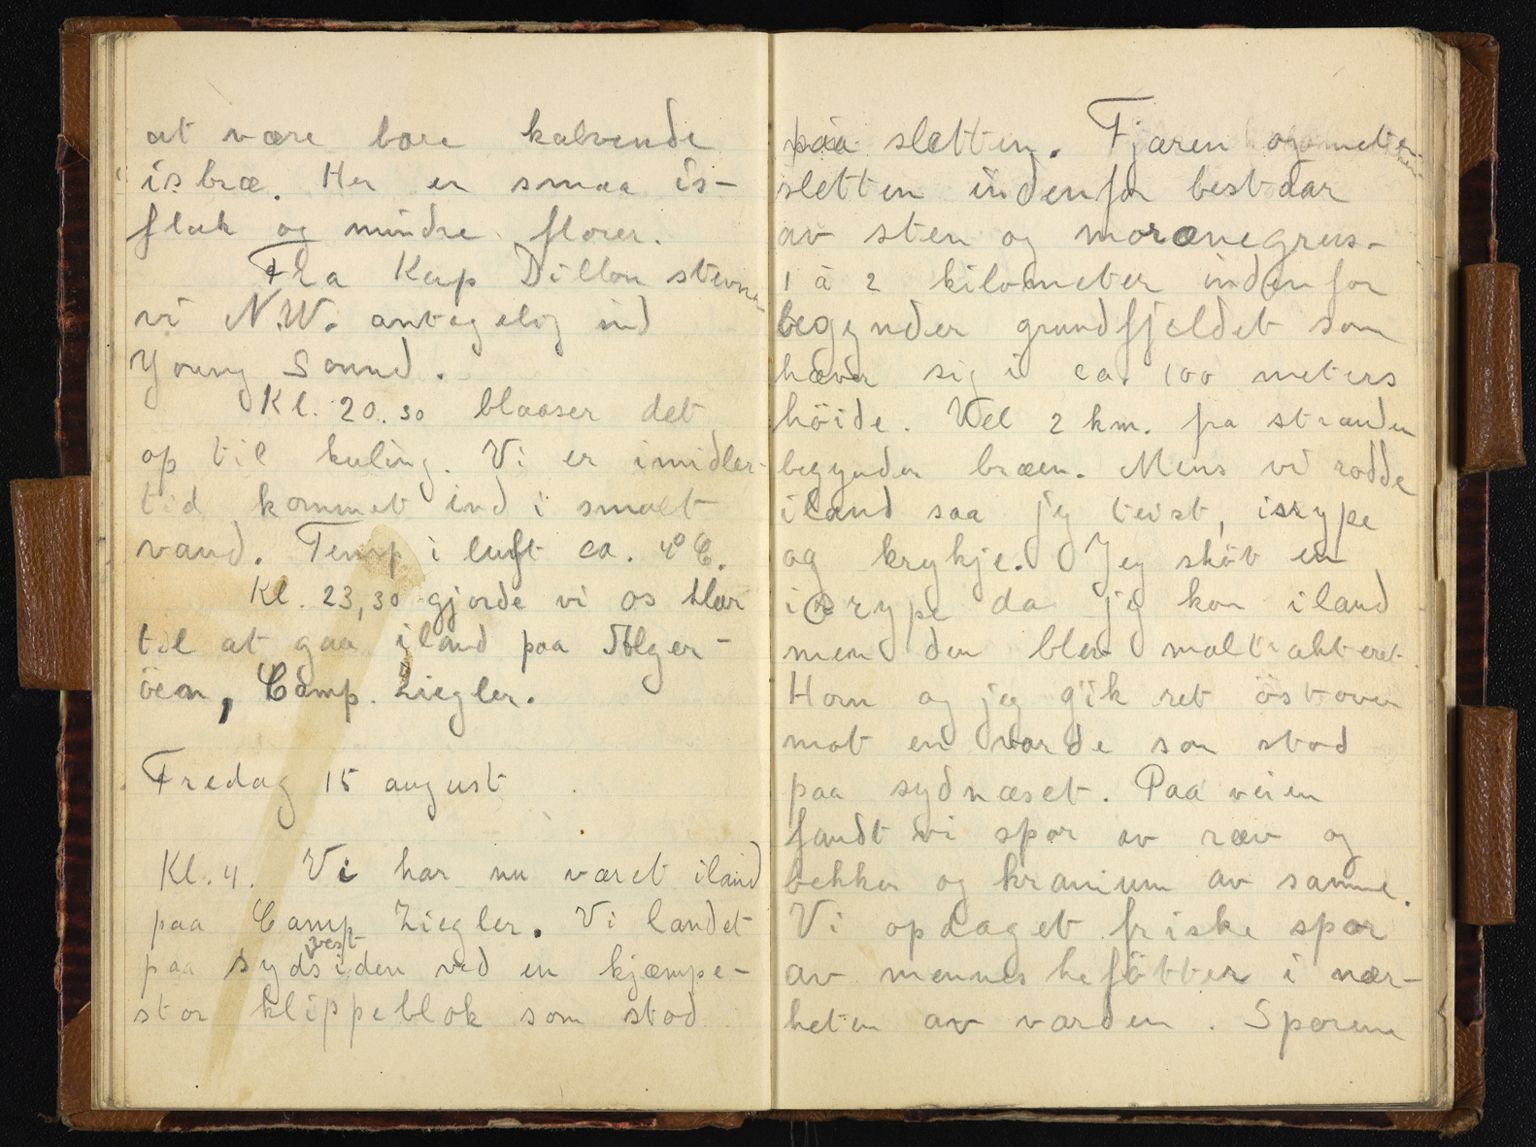 at være bare kalvende
isbræ. Her er smaa is-
flak og mindre florer.
Fra Kap Dillon stevner
vi N.W. antagelig ind
Young Sound.
Kl. 20.30 blaaser det
op til kuling. Vi er imidler-
tid kommet ind i smalt
vand. Temp i luft ca. 4° C.
Kl. 23,30 gjorde vi os klar
til at gaa iland paa Alger-
öen, Camp. Ziegler.
Fredag 15 august
Kl. 4. Vi har nu været iland
paa Camp Ziegler. Vi landet
vest
paa sydsiden ved en kjæmpe-
stor klippeblok som stod
paa sletten. Fjæren og
sletten indenfor bestaar
av sten og morænegrus-
1 à 2 kilometer indenfor
begynder grundfjeldet som
hæver sig i ca. 100 meters
höide. Vel 2 km. fra stranden
begynder bræen. Mens vi rodde
iland saa jeg teist, isrype
og krykje. Jeg sköt en
isrype da jeg kom iland
men den blev maltrakteret.
Horn og jeg gik ret östover
mot en varde som stod
paa sydnæset. Paa veien
fandt vi spor av ræv og
og kranium av samme.
Vi opdaget friske spor
av menneskefötter i nær-
heten av varden. Sporene